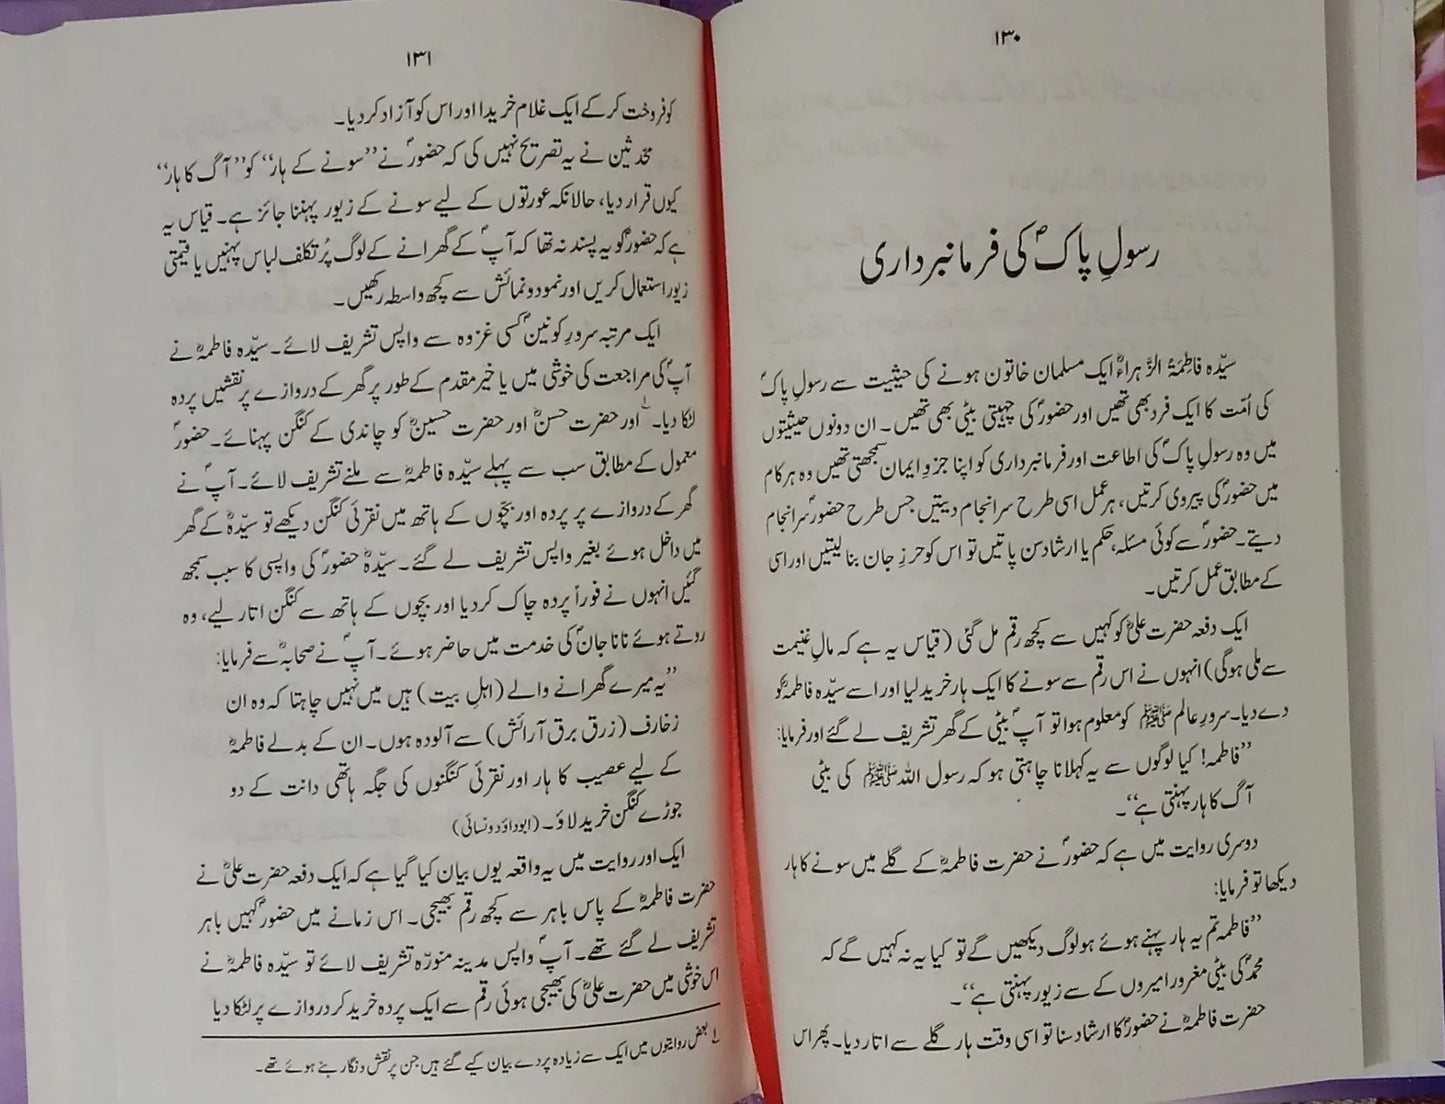 ۱۳۰
رسولِ پاکؐ کی فرمانبرداری
سیّدہ فاطِمَۃُ الزَّہراءؓ ایک مسلمان خاتون ہونے کی حیثیت سے رسولِ پاکؐ
کی اُمّت کا ایک فرد بھی تھیں اور حضورؐ کی چہیتی بیٹی بھی تھیں۔ ان دونوں حیثیتوں
میں وہ رسولِ پاکؐ کی اطاعت اور فرمانبرداری کو اپنا جزوِ ایمان سمجھتی تھیں وہ ہر کام
میں حضورؐ کی پیروی کرتیں، ہر عمل اسی طرح سرانجام دیتیں جس طرح حضورؐ سرانجام
دیتے۔ حضورؐ سے کوئی مسئلہ، حکم یا ارشاد سن پاتیں تو اس کو حرزِ جان بنا لیتیں اور اسی
کے مطابق عمل کرتیں۔
ایک دفعہ حضرت علیؓ کو کہیں سے کچھ رقم مل گئی (قیاس یہ ہے کہ مالِ غنیمت
سے ملی ہوگی) انہوں نے اس رقم سے سونے کا ایک ہار خرید لیا اور اسے سیّدہ فاطمہؓ کو
دے دیا۔ سرورِ عالم ﷺ کو معلوم ہوا تو آپؐ بیٹی کے گھر تشریف لے گئے اور فرمایا:
’’فاطمہ! کیا لوگوں سے یہ کہلانا چاہتی ہو کہ رسول اللہ ﷺ کی بیٹی
آگ کا ہار پہنتی ہے‘‘۔
دوسری روایت میں ہے کہ حضورؐ نے حضرت فاطمہؓ کے گلے میں سونے کا ہار
دیکھا تو فرمایا:
’’فاطمہ تم یہ ہار پہنے ہوئے ہو لوگ دیکھیں گے تو کیا یہ نہ کہیں گے کہ
محمدؐ کی بیٹی مغرور امیروں کے سے زیور پہنتی ہے‘‘۔
حضرت فاطمہؓ نے حضورؐ کا ارشاد سنا تو اسی وقت ہار گلے سے اتار دیا۔ پھر اس
۱۳۱
کو فروخت کر کے ایک غلام خریدا اور اس کو آزاد کر دیا۔
محدثین نے یہ تصریح نہیں کی کہ حضورؐ نے ’’سونے کے ہار‘‘ کو ’’آگ کا ہار‘‘
کیوں قرار دیا، حالانکہ عورتوں کے لیے سونے کے زیور پہننا جائز ہے۔ قیاس یہ
ہے کہ حضورؐ کو یہ پسند نہ تھا کہ آپؐ کے گھرانے کے لوگ پُر تکلف لباس پہنیں یا قیمتی
زیور استعمال کریں اور نمود و نمائش سے کچھ واسطہ رکھیں۔
ایک مرتبہ سرورِ کونینؐ کسی غزوہ سے واپس تشریف لائے۔ سیّدہ فاطمہؓ نے
آپؐ کی مراجعت کی خوشی میں یا خیر مقدم کے طور پر گھر کے دروازے پر نقشیں پردہ
لٹکا دیا۔۱؎ اور حضرت حسنؓ اور حضرت حسینؓ کو چاندی کے کنگن پہنائے۔ حضورؐ
معمول کے مطابق سب سے پہلے سیّدہ فاطمہؓ سے ملنے تشریف لائے۔ آپؐ نے
گھر کے دروازے پر پردہ اور بچّوں کے ہاتھ میں نقرئی کنگن دیکھے تو سیّدہؓ کے گھر
میں داخل ہوئے بغیر واپس تشریف لے گئے۔ سیّدہؓ حضورؐ کی واپسی کا سبب سمجھ
گئیں انہوں نے فوراً پردہ چاک کر دیا اور بچوں کے ہاتھ سے کنگن اتار لیے، وہ
روتے ہوئے نانا جانؐ کی خدمت میں حاضر ہوئے۔ آپؐ نے صحابہؓ سے فرمایا:
’’یہ میرے گھرانے والے (اہلِ بیت) ہیں میں نہیں چاہتا کہ وہ ان
زخارف (زرق برق آرائش) سے آلودہ ہوں۔ ان کے بدلے فاطمہؓ
کے لیے عصیب کا ہار اور نقرئی کنگنوں کی جگہ ہاتھی دانت کے دو
جوڑے کنگن خرید لاؤ۔ (ابوداؤد و نسائی)
ایک اور روایت میں یہ واقعہ یوں بیان کیا گیا ہے کہ ایک دفعہ حضرت علیؓ نے
حضرت فاطمہؓ کے پاس باہر سے کچھ رقم بھیجی۔ اس زمانے میں حضورؐ کہیں باہر
تشریف لے گئے تھے۔ آپؐ واپس مدینہ منورّہ تشریف لائے تو سیّدہ فاطمہؓ نے
اس خوشی میں حضرت علیؓ کی بھیجی ہوئی رقم سے ایک پردہ خرید کر دروازے پر لٹکا دیا
۱؎ بعض روایتوں میں ایک سے زیادہ پردے بیان کیے گئے ہیں جن پر نقش و نگار بنے ہوئے تھے۔